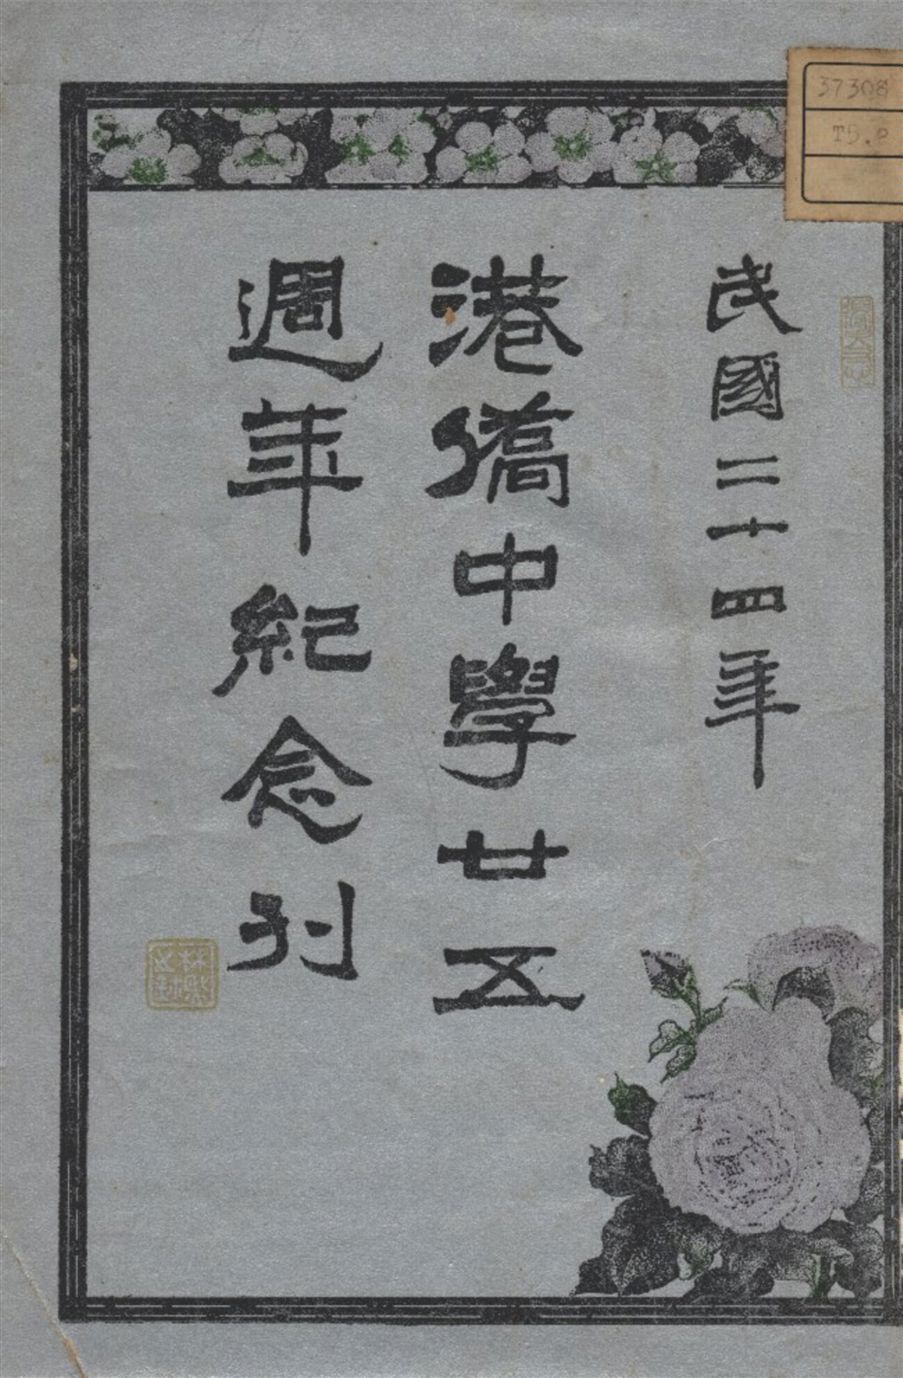 民國二十四年
港僑中學廿五
週年紀念刊
37308
T5.2